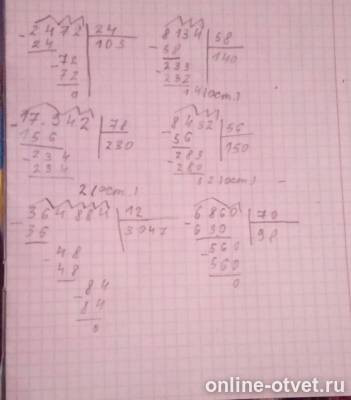 - 2472 | 24
24 | 103
- 72
72
0
- 8134 | 58
58 | 140
- 233
232
14(ост.)
- 17.942 | 78
156 | 230
- 234
234
2(ост.)
- 8432 | 56
56 | 150
- 283
280
(ост.)
- 364884 | 12
36 | 3047
- 48
48
- 84
84
0
- 6860 | 70
630 | 98
- 560
560
0
online-otvet.ru